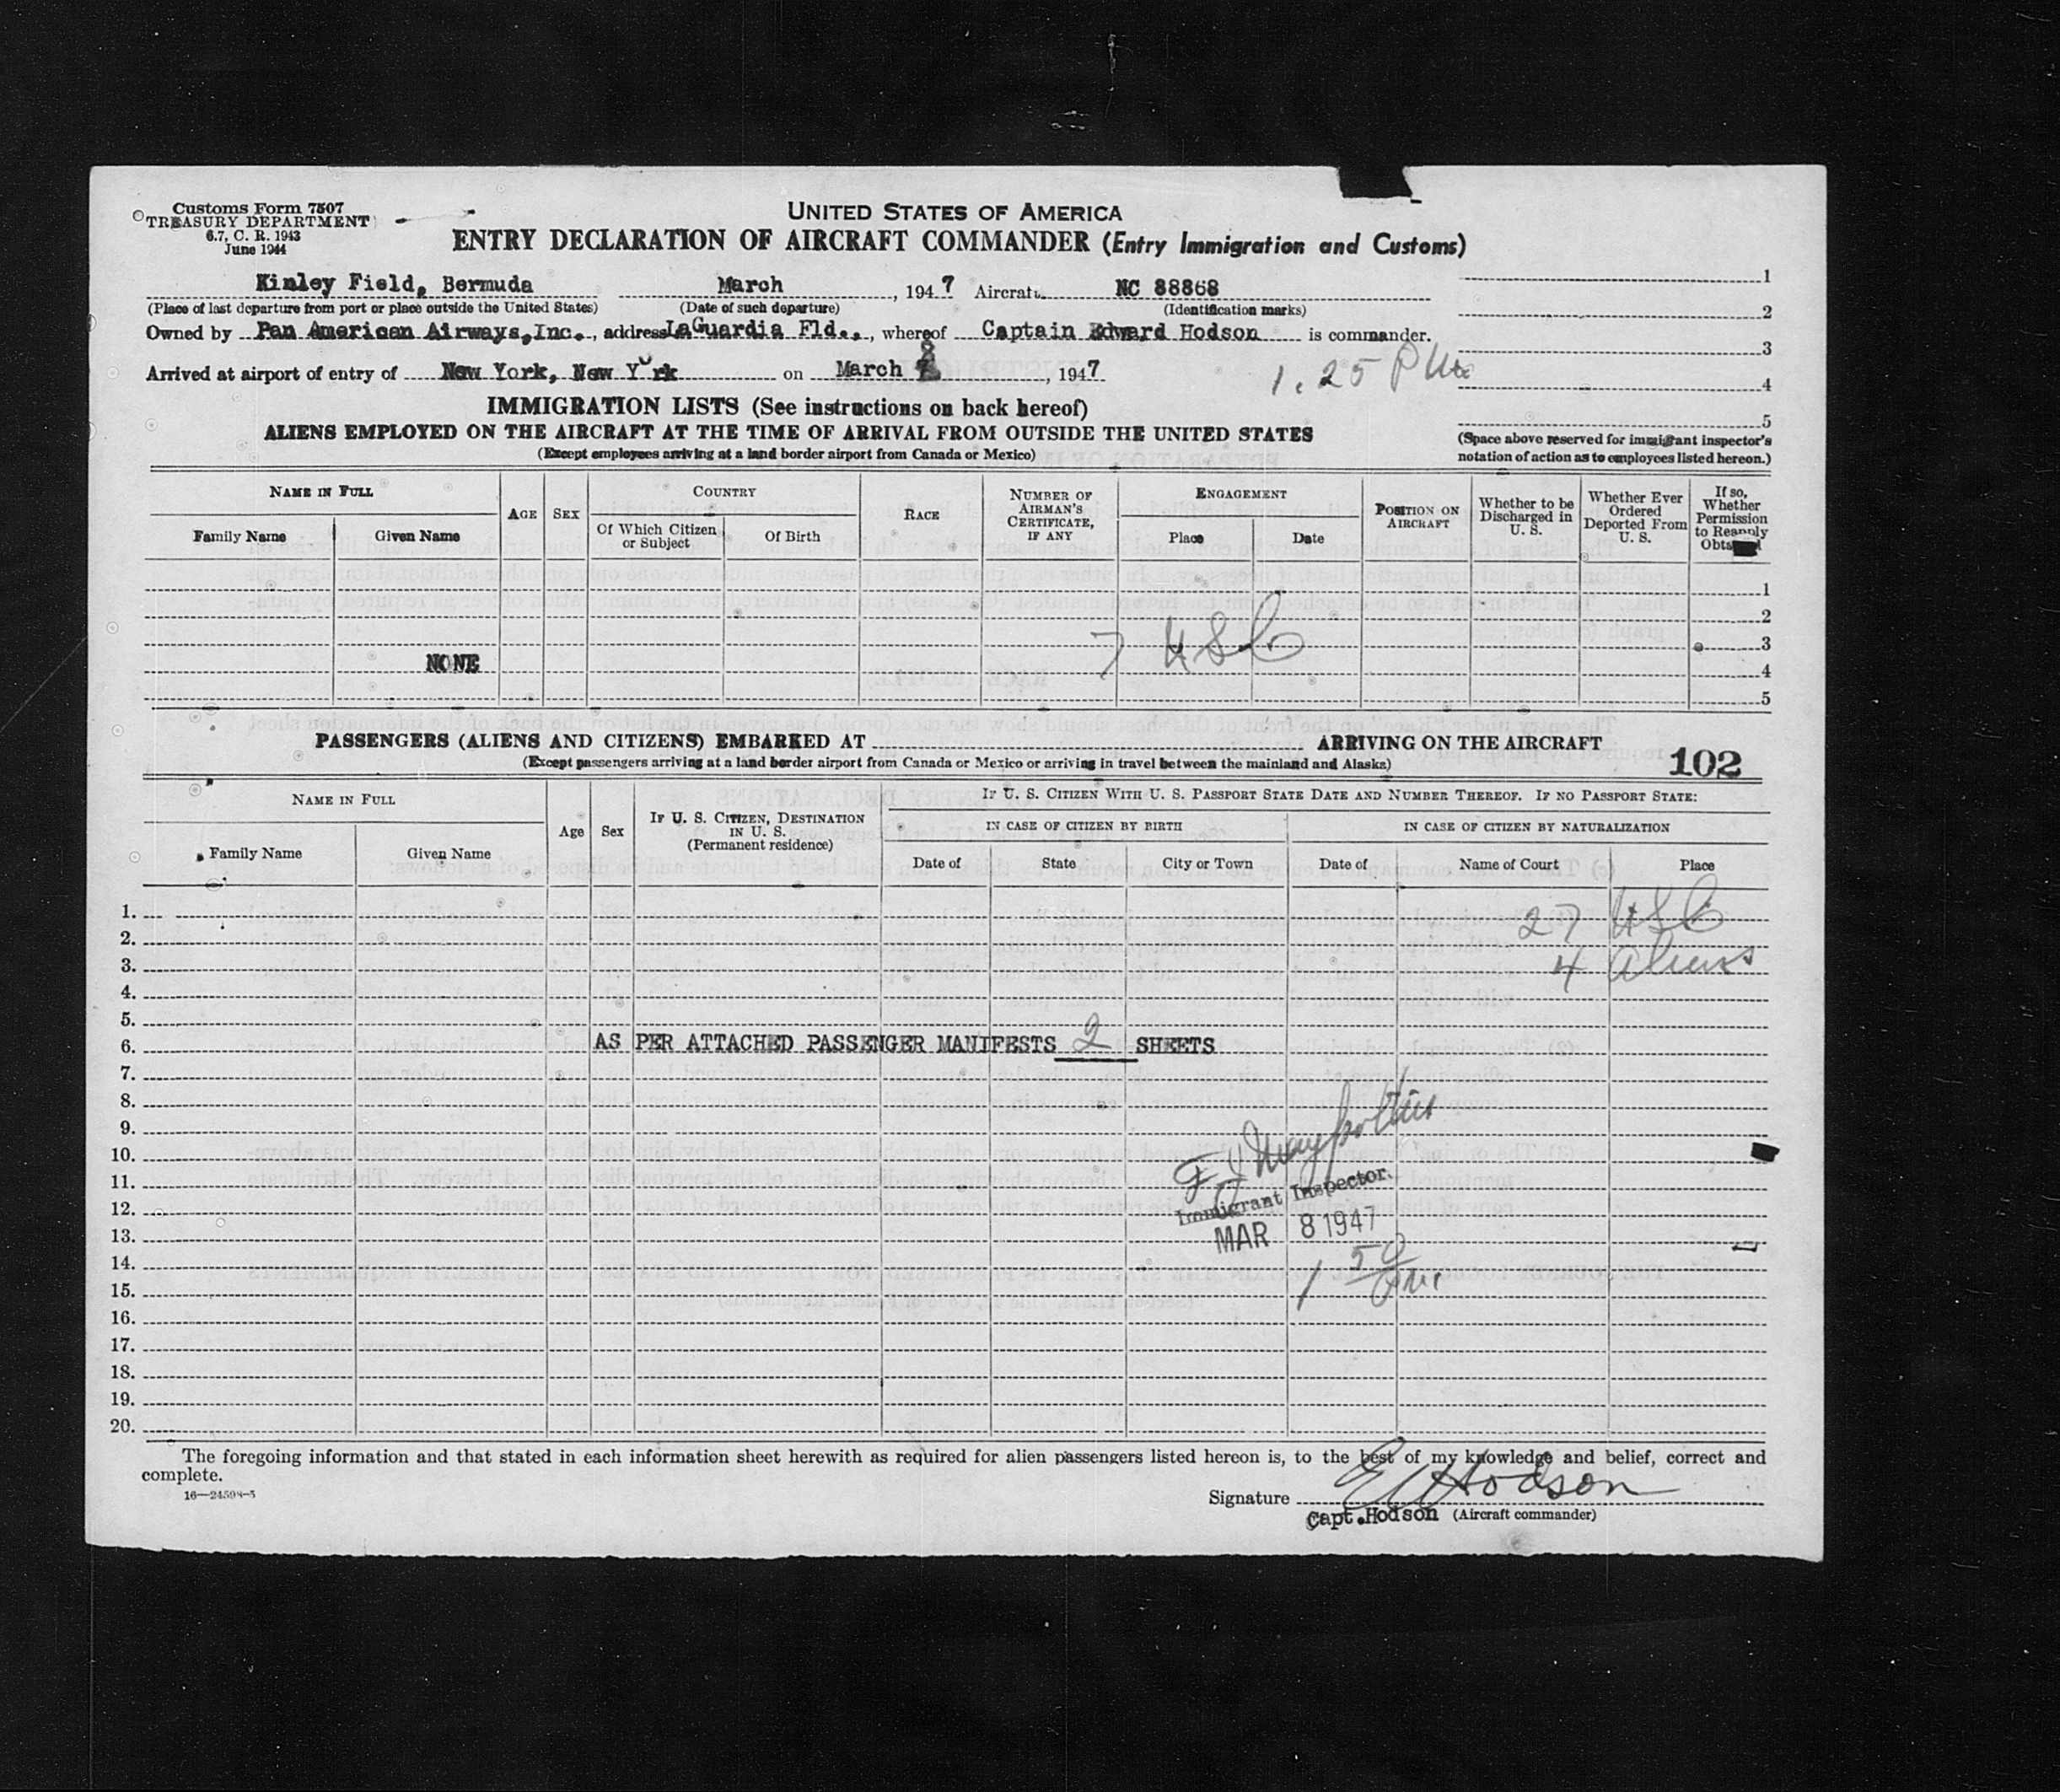 Customs Form 7507
TREASURY DEPARTMENT
6.7, C. R. 1943
June 1944
UNITED STATES OF AMERICA
ENTRY DECLARATION OF AIRCRAFT COMMANDER (Entry Immigration and Customs)
Kinley Field, Bermuda March , 1947 Aircraft NC 88868
(Place of last departure from port or place outside the United States) (Date of such departure) (Identification marks)
Owned by Pan American Airways,Inc. , address LaGuardia Fld., , whereof Captain Edward Hodson is commander.
Arrived at airport of entry of New York, New York on March 8 , 1947 1.25 PM
1
2
3
4
5
(Space above reserved for immigrant inspector's
notation of action as to employees listed hereon.)
IMMIGRATION LISTS (See instructions on back hereof)
ALIENS EMPLOYED ON THE AIRCRAFT AT THE TIME OF ARRIVAL FROM OUTSIDE THE UNITED STATES
(Except employees arriving at a land border airport from Canada or Mexico)
NAME IN FULL
Family Name Given Name
AGE
SEX
COUNTRY
Of Which Citizen or Subject
Of Birth
RACE
NUMBER OF AIRMAN'S CERTIFICATE, IF ANY
ENGAGEMENT
Place Date
POSITION ON AIRCRAFT
Whether to be Discharged in U. S.
Whether Ever Ordered Deported From U. S.
If so, Whether Permission to Reapply
1
2
7 USC 3
NONE 4
5
PASSENGERS (ALIENS AND CITIZENS) EMBARKED AT ARRIVING ON THE AIRCRAFT
(Except passengers arriving at a land border airport from Canada or Mexico or arriving in travel between the mainland and Alaska)
102
NAME IN FULL
Family Name Given Name
Age
Sex
IF U. S. CITIZEN, DESTINATION IN U. S.
(Permanent residence)
IF U. S. CITIZEN WITH U. S. PASSPORT STATE DATE AND NUMBER THEREOF. IF NO PASSPORT STATE:
IN CASE OF CITIZEN BY BIRTH IN CASE OF CITIZEN BY NATURALIZATION
Date of State City or Town Date of Name of Court Place
1. 27 USC
2.
3. 4 Aliens
4.
5.
6. AS PER ATTACHED PASSENGER MANIFESTS 2 SHEETS
7.
8.
9.
10.
11.
Immigrant Inspector.
12.
13. MAR 8 1947
14. 1 50
15. PM
16.
17.
18.
19.
20.
The foregoing information and that stated in each information sheet herewith as required for alien passengers listed hereon is, to the best of my knowledge and belief, correct and
complete.
16—24598-5
Signature E Hodson
Capt.Hodson (Aircraft commander)